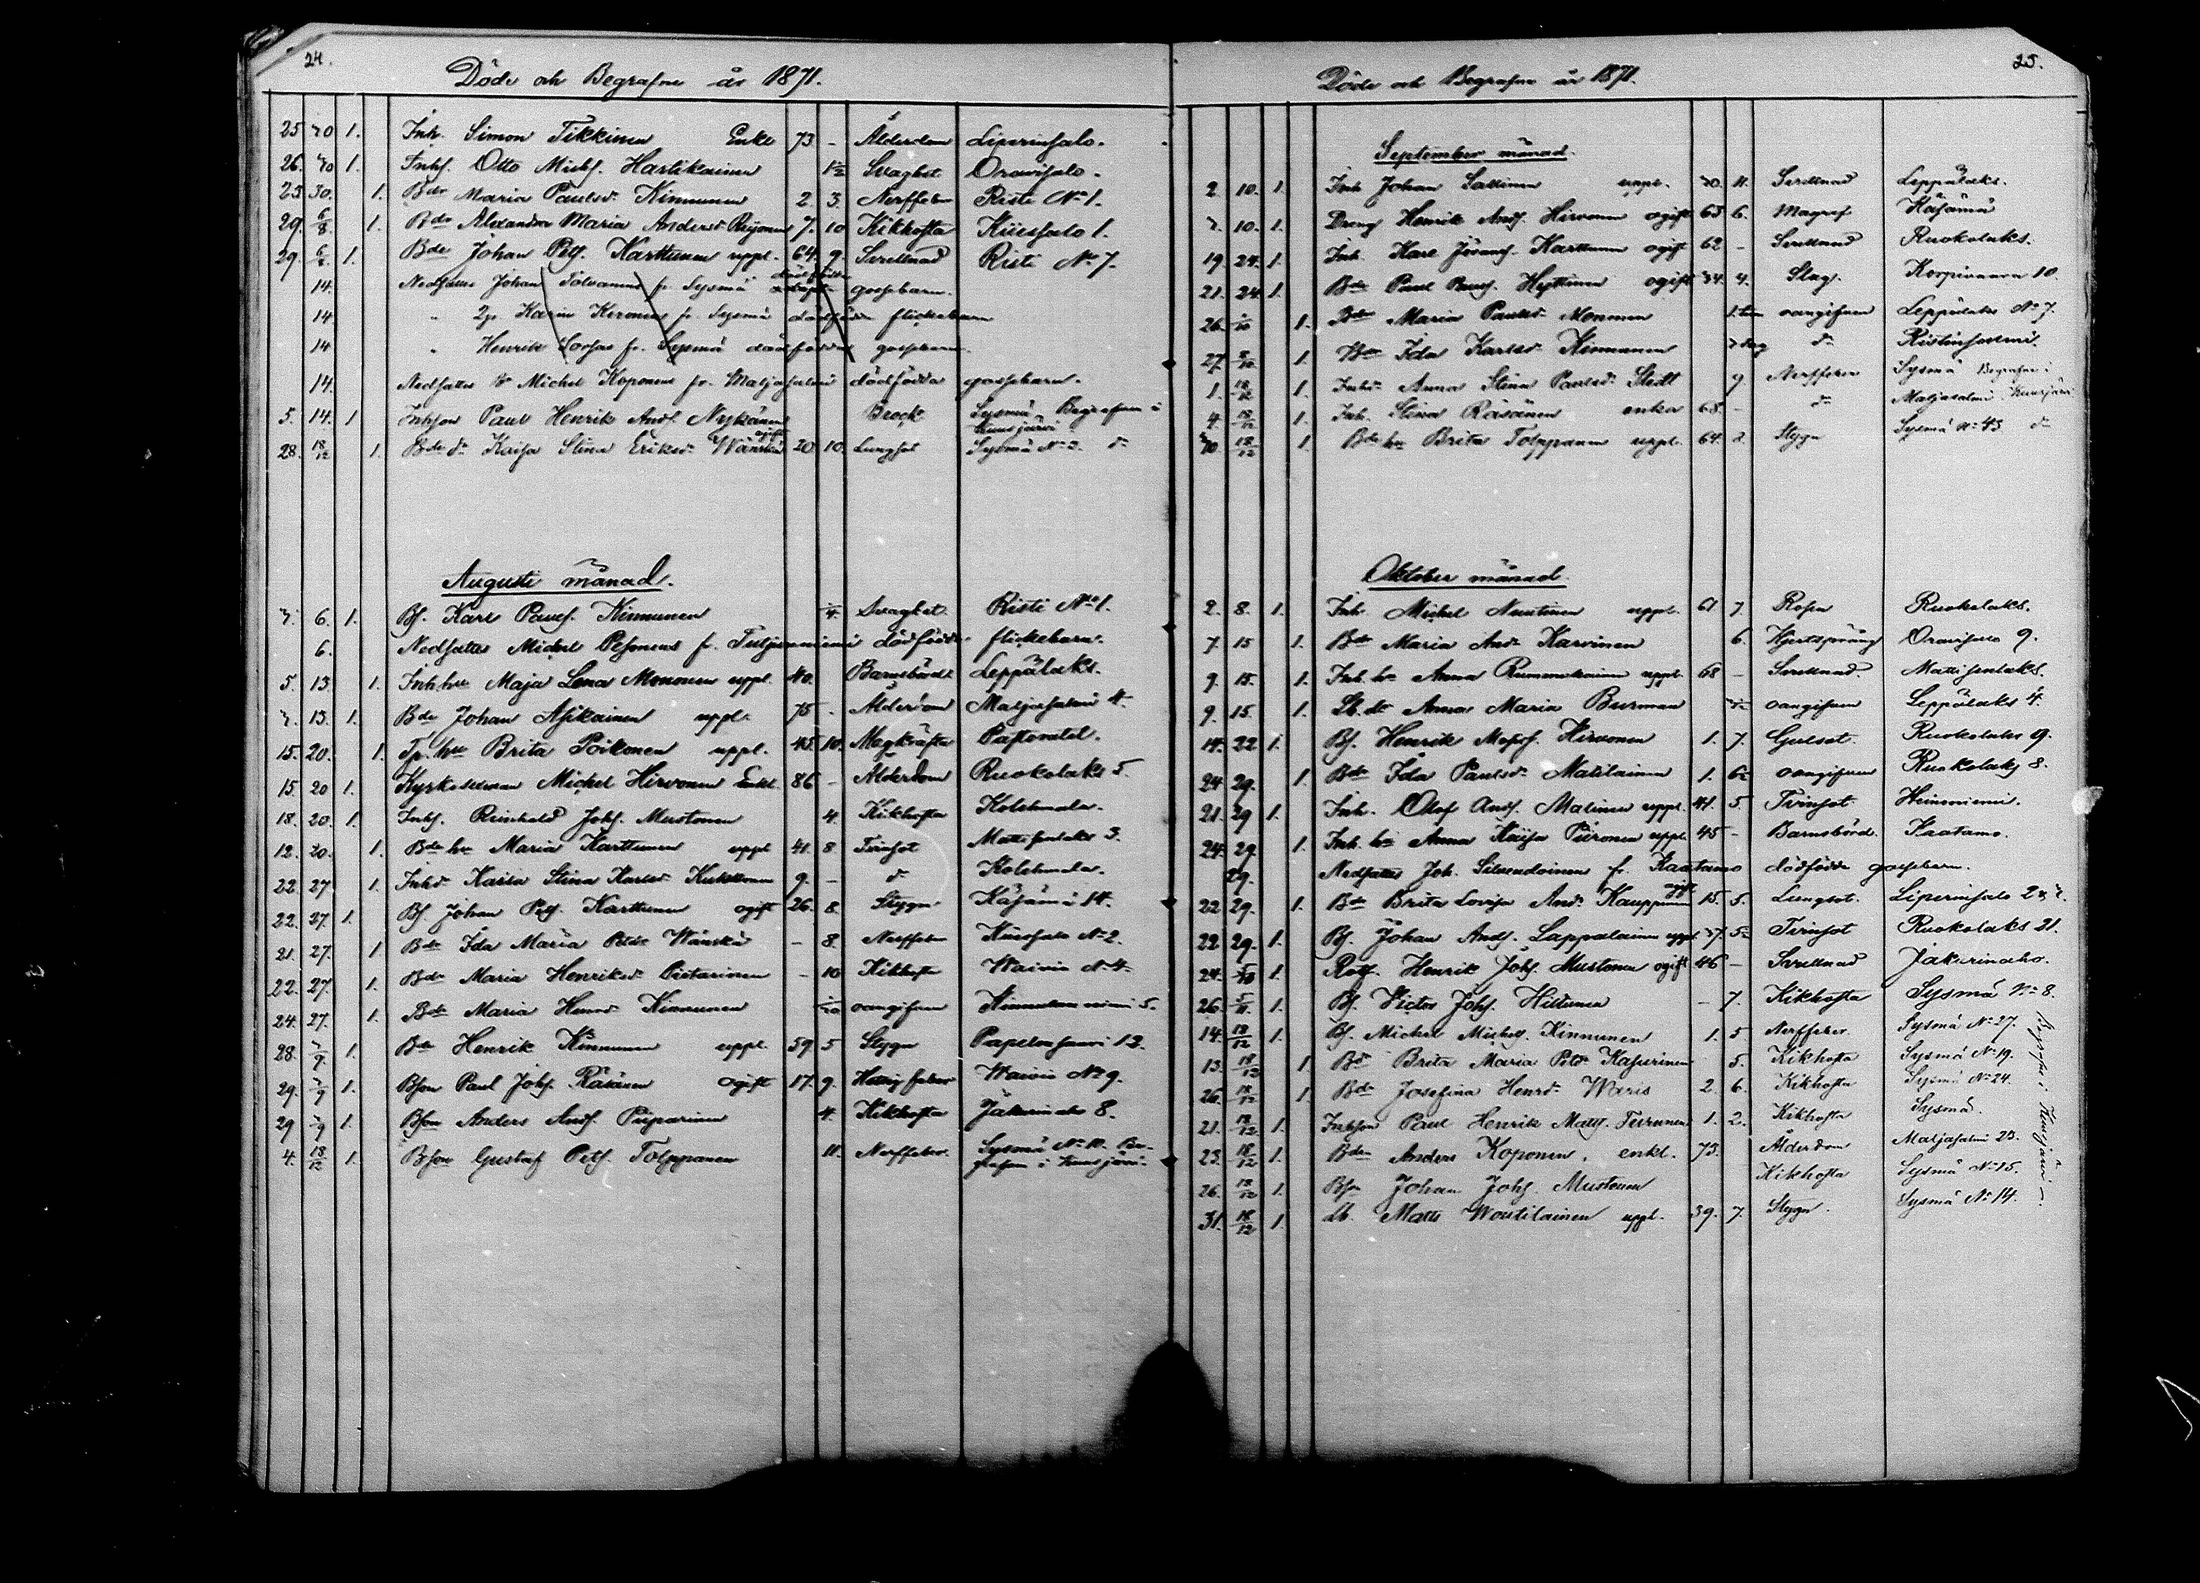 24.
Döde och Begrafne år 1871.
25 30 1. Inh. Simon Tikkinen Enkl. 73 - Ålderdom Liperinsalo.
26. 30 1. Inhs. Otto Michs. Hartikainen 1/2 Svaghet Oravisalo.
23 30. 1. Bdr Maria Paulsd. Kinnunen 2. 3. Nerffeber Risti No 1.
29. 6/8 1. Bdr Alexandra Maria Andersd. Reijonen 7. 10 Kikhosta Kuussalo 1.
29 6/8 1. Bde Johan Petts. Karttunen uppl. 64. 9. Svullnad Risti No 7.
14. Nedsattes Johan Tolvanens fr. Sysmä dödfödde gossebarn.
14. " 2ne Karin Keronens fr Sysmä dödfödde flickebarn
14. " Henrik fr. Sysmä dödfödda gossebarn.
14. Nedsattes Michel Koponens fr. Maljasalmi dödfödda gossebarn.
5. 14. 1 Inhson Paul Henrik Ands. Nykänen Brock Sysmä Begrafven i Kuusjärvi
28. 18/12 1. Bde dr Kaisa Stina Eriksd. Wänskä ogift 20 10. Lungsot Sysmä No 2. do
Augusti månad.
3. 6. 1. Bs. Karl Pauls. Kinnunen 1/4. Svaghet Risti No 1.
6. Nedsattes Michel Pesonens fr. Tutjunniemi dödfödde flickebarn.
5. 13. 1. Inh hu Maja Lena Mononen uppl. 40. Barnsbörd Leppälaks.
3. 13. 1. Bde Johan Asikainen uppl. 75 - Ålderdom Maljasalmi 4.
15. 20. 1. Tp. hu Brita Poikonen uppl. 45. 10. Magkräfta Pastorslal.
15. 20 1. Kyrkoseman Michel Hirvonen Enkl. 86 - Ålderdom Ruokolaks 5.
18. 20. 1. Inhs. Reinhold Johs. Mustonen 4. Kikhosta Kolehmala.
12. 20. 1. Bde hu Maria Karttunen uppl 41. 8 Tvinsot Mattisenlaks 3.
22. 27 1. Inhd. Karla Stina Karlsd. 9. - do Kolehmala.
22. 27. 1. Bs Johan Petts. Karttunen ogift 26. 8. Stygn Käsämä 14.
21. 27. 1 Bdr Ida Maria Petsdr Wänskä - 8. Nerffeber Kuussalo No 2.
22. 27. 1. Bdr Maria Henriksd. Pietarinen - 10 Kikhosta Waivio No 4.
24. 27. 1. Bdr Maria Henrd. Kinnunen oangifven Kinnulanniemi 5.
28. 3/9. 1. Bde Henrik Kinnunen uppl. 59 5 Stygn Papelonsaari 12.
29. 3/9 1. Bson Paul Johs. Räsänen ogift 17. 9. feber Waivio No 9.
29 3/9 1. Bson Anders Ands. Piiparinen 4. Kikhosta Jakurinaho 8.
4. 18/12 1. Bson Gustaf Petts. Tolppanen 11. Nerffeber Sysmä No 10. Be-
grafven i Kuusjärvi.
25.
Döde och Begrafne år 1871.
September månad.
2 10. 1. Inh Johan Sallinen uppl. 30. 11. Svullnad Leppälaks.
3. 10. 1. Dreng Henrik Ands. Hirvonen ogift 63 6. Magref Käsämä
19 24. 1. Inh. Karl Jörans. Karttunen ogift 62 - Svullnad Ruokolaks.
21. 24 1. Bde Paul Pauls. Hyttinen ogift 34. 4. Slag. Korpivaara 10.
26. 1/10 1. Bdr Maria Paulsd. Mononen 1. tim oangifven Leppälaks No 7.
27 8/10. 1 Bdr Ida Karlsd. Kinnunen 3 dag do Ristinsaloniemi.
1. 18/12 1. Inhd. Anna Stina Paulsd. Stedt 9. Nerffeber Sysmä Begrafven i
4. 18/12 1. Inh. Stina Räsänen enka 68. - do Maljasalmi Kuusjärvi
30. 18/12 1 Bde hu Brita Tolppanen uppl. 64. 2. Stygn Sysmä No 43 do
Oktober månad.
2. 8. 1. Inh Michel Nuutinen uppl. 61 7. Rosen Ruokolaks.
7. 15 1. Bdr Maria Andr. Karvinen 6. Hjertsprång Oravisalo 9.
9. 15. 1. Inh. hu Anna Rummukainen uppl. 68 - Svullnad. Mattisenlaks.
9. 15. 1. Lb. dr Anna Maria Burman oangifven Leppälaks 4.
14. 22 1. Bs. Henrik Mats. Hirvonen 1. 7. Gulsot. Ruokolaks 9.
24 29. 1. Bdr Ida Paulsd. Matilainen 1. 6 oangifven Ruokolaks 8.
21. 29 1. Inh. Olof Ands. Malinen uppl. 41. 5. Tvinsot Heinoniemi.
24. 29. 1. Inh. hu Anna Kaisa Piironen uppl. 45 - Barnsbörd. Kaatamo.
29. Nedsattes Joh. Silvendoinens fr. Kaatamo dödfödde gossebarn.
22. 29. 1. Bdr Brita Lovisa Andr. Kauppinen ogift 15. 5. Lungsot. Liperinsalo
22. 29. 1. Bs. Johan Ands. Lappalainen uppl. 37. 5 Tvinsot Ruokolaks 21.
24. 1. Rots. Henrik Johs. Mustonen ogift 46 - Svullnad Jakurinaho.
26. 5/11. 1. Bs. Victor Johs. Hiltunen - 7. Kikhosta Sysmä No 8.
14. 18/12 1. Bs. Michel Michels. Kinnunen 1. 5 Nerffeber. Sysmä No 27.
13. 18/12 1 Bdr Brita Maria Petdr Kasurinen 5. Kikhosta Sysmä No 19.
26. 18/12 1 Bdr Josefina Henrd. Waris 2. 6. Kikhosta Sysmä No 24.
21. 18/12 1. Inhson Paul Henrik Matts. Tervonen 1. 2. Kikhosta Sysmä.
23. 18/12 1. Bde Anders Koponen. enkl. 73. Ålderdom Maljasalmi 23.
26. 18/12 1. Bson Johan Johs. Mustonen Kikhosta Sysmä No 15.
31. 18/12 1. Lb. Matts Woutilainen uppl. 39. 7. Stygn. Sysmä No 14.
Begrafne i Kuusjärvi